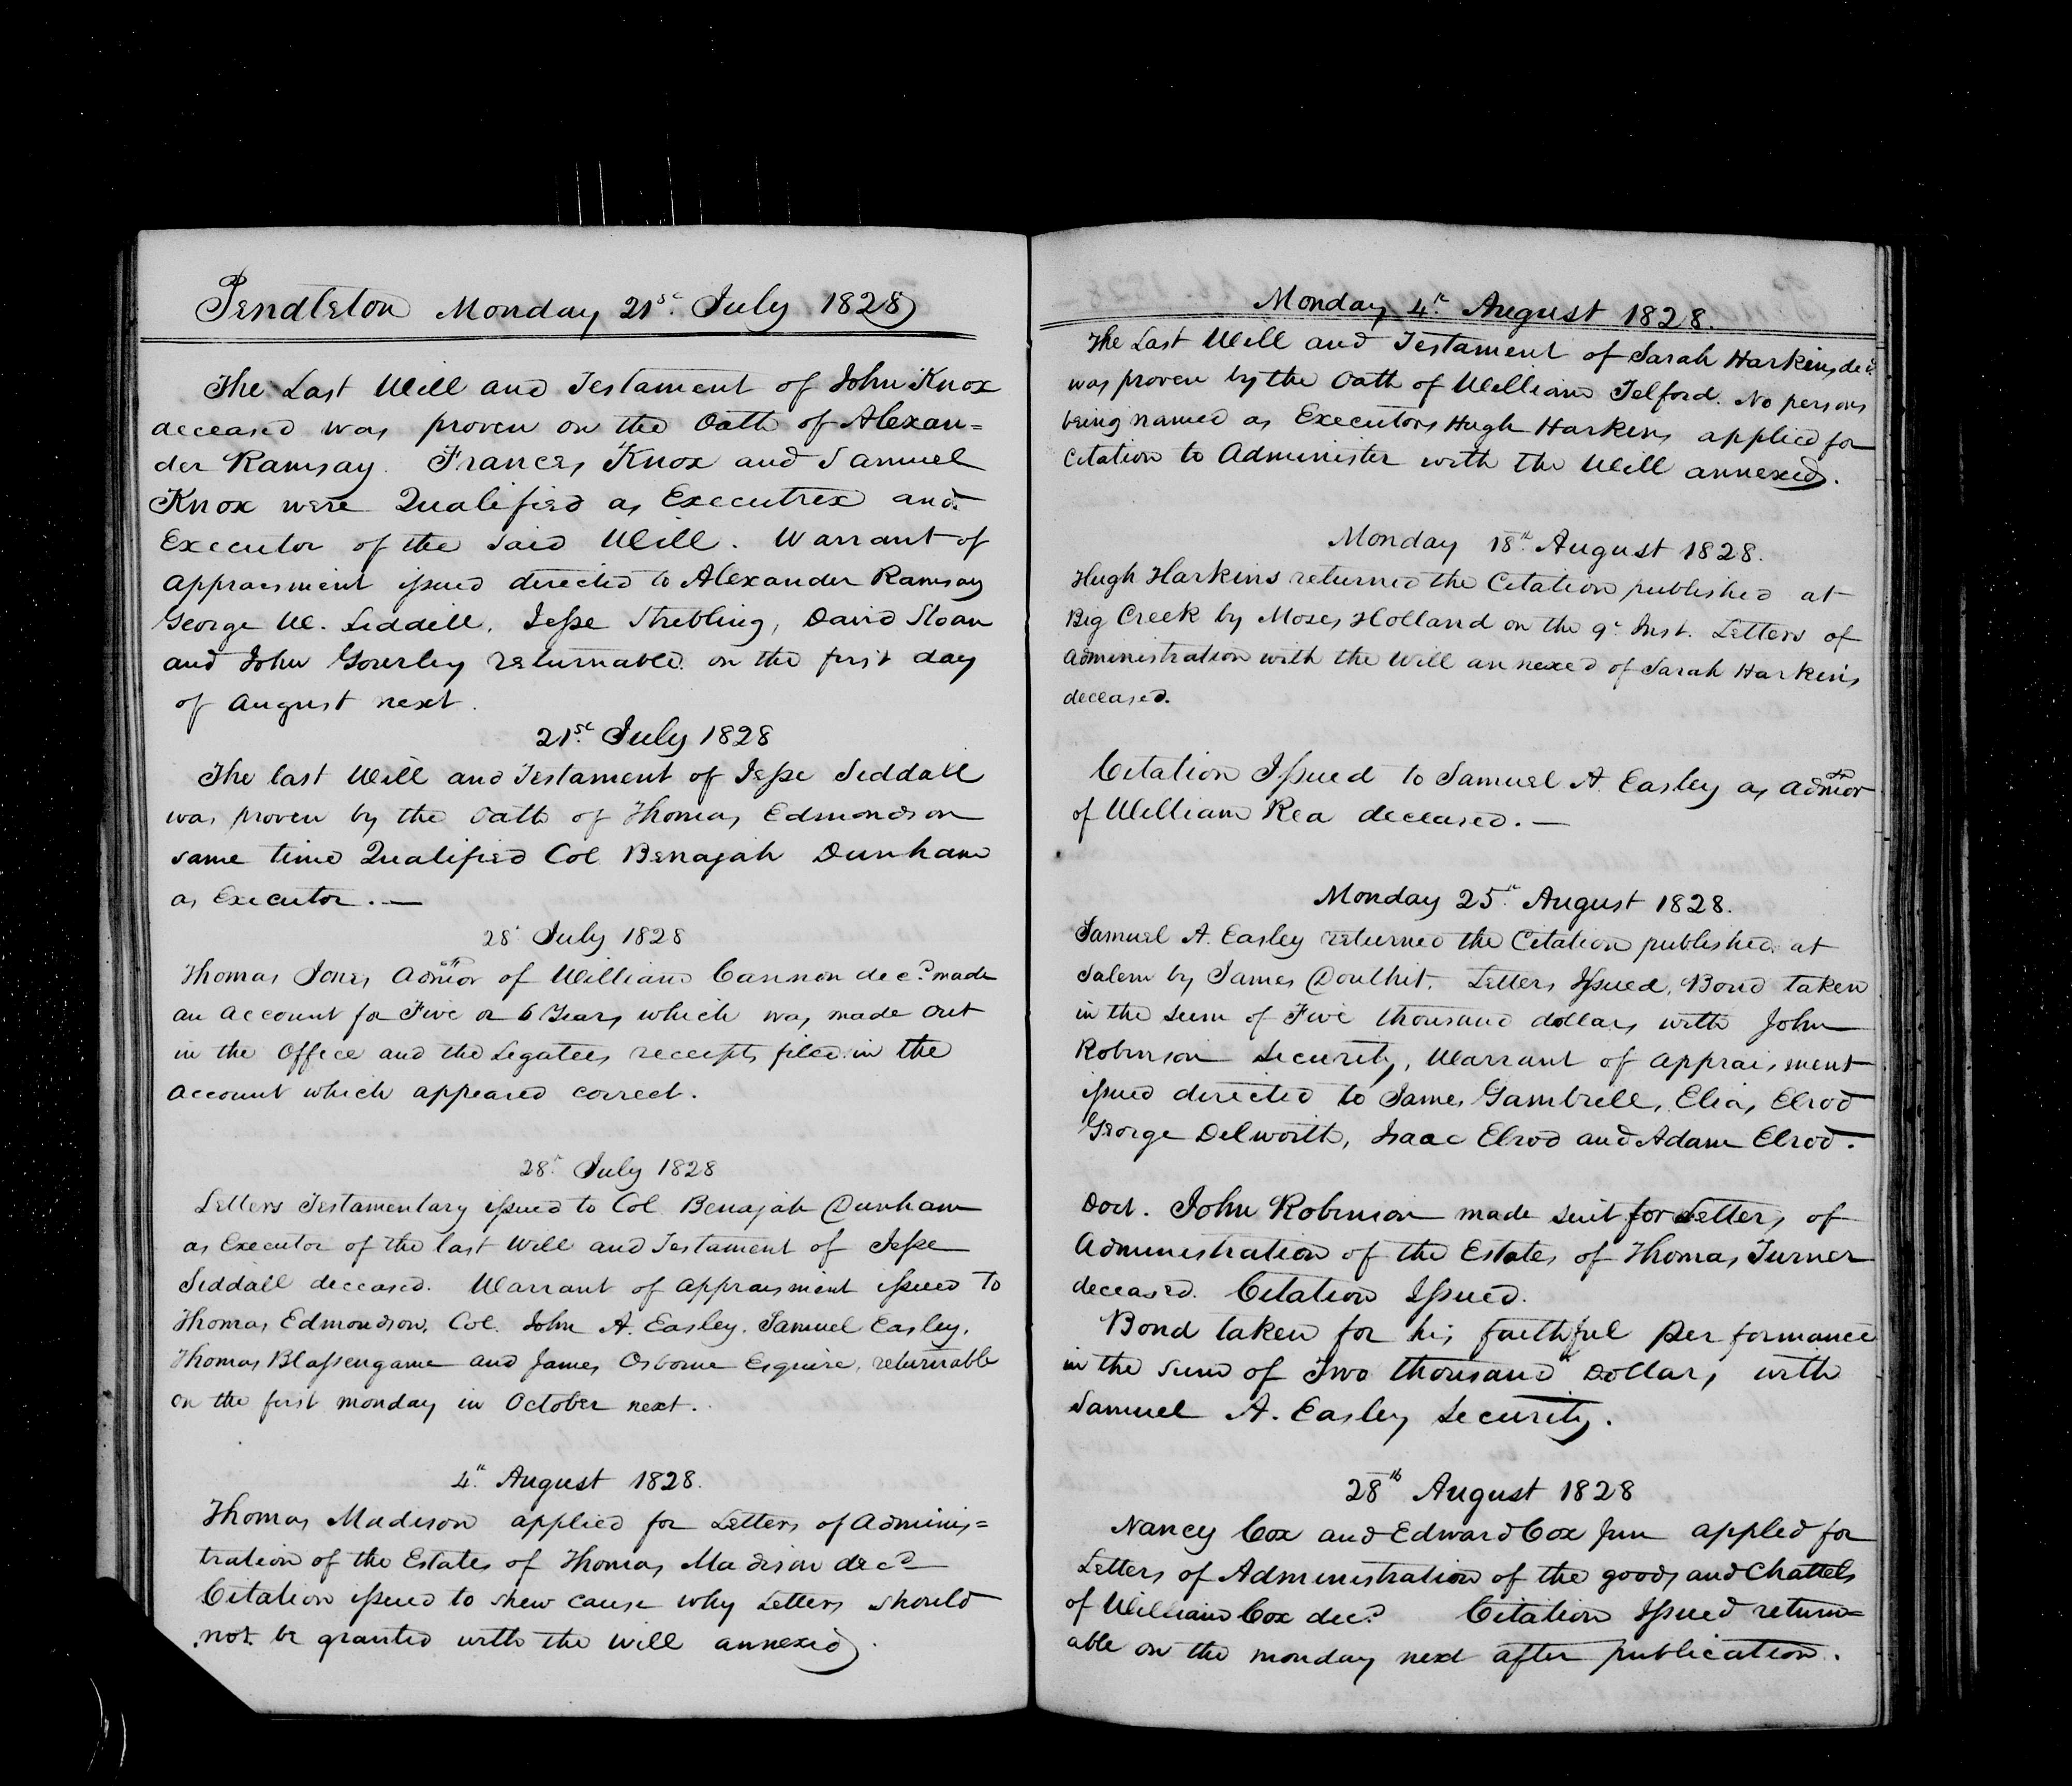 Pendleton Monday 21st July 1828
The Last Will and Testament of John Knox
deceased was proven on the Oath of Alexan=
der Ramsay. Frances Knox and Samuel
Knox were Qualified as Executrex and
Executor of the said Will. Warrant of
appraisment issued directed to Alexander Ramsay
George W. Liddell, Jesse Stribling, David Sloan
and John Gourley returnable on the first day
of August next.
21st July 1828
The last Will and Testament of Jesse Siddall
was proven by the Oath of Thomas Edmondson
same time Qualified Col. Benajah Dunham
as Executor. —
28 July 1828
Thomas Jones Admor of William Cannon decd made
an account for Five or 6 Years which was made out
in the Office and the Legatees receipts filed in the
account which appeared correct.
28th July 1828
Letters Testamentary issued to Col Benajah Dunham
as Executor of the last Will and Testament of Jesse
Siddall deceased. Warrant of appraisment issued to
Thomas Edmondson, Col. John A. Easley, Samuel Easley,
Thomas Blassengame and James Osborne Esquire, returnable
on the first monday in October next.
4th August 1828.
Thomas Madison applied for Letters of Adminis=
tration of the Estates of Thomas Madison decd
Citation issued to shew cause why Letters should
not be granted with the will annexed.
Monday 4th August 1828.
The Last Will and Testament of Sarah Harkins decd
was proven by the Oath of William Telford. No persons
being named as Executors Hugh Harkins applied for
Citation to Administer with the Will annexed.
Monday 18th August 1828.
Hugh Harkins returned the Citation published at
Big Creek by Moses Holland on the 9th Inst. Letters of
Administration with the Will annexed of Sarah Harkins
deceased.
Citation Issued to Samuel A. Easley as admor
of William Rea deceased. —
Monday 25th August 1828.
Samuel A. Easley returned the Citation published at
Salem by James Douthit. Letters Issued, Bond taken
in the sum of Five thousand dollars with John
Robinson Security, Warrant of appraisment
issued directed to James Gambrell, Elias Elrod
George Delworth, Isaac Elrod and Adam Elrod.
Doct. John Robinson made suit for Letters of
Administration of the Estates of Thomas Turner
deceased. Citation Issued.
Bond taken for his faithful performance
in the sum of Two thousand Dollars with
Samuel A. Easley Security.
28th August 1828
Nancy Cox and Edward Cox Jun applied for
Letters of Administration of the goods and Chattels
of William Cox decd Citation Issued return=
able on the monday next after publication.